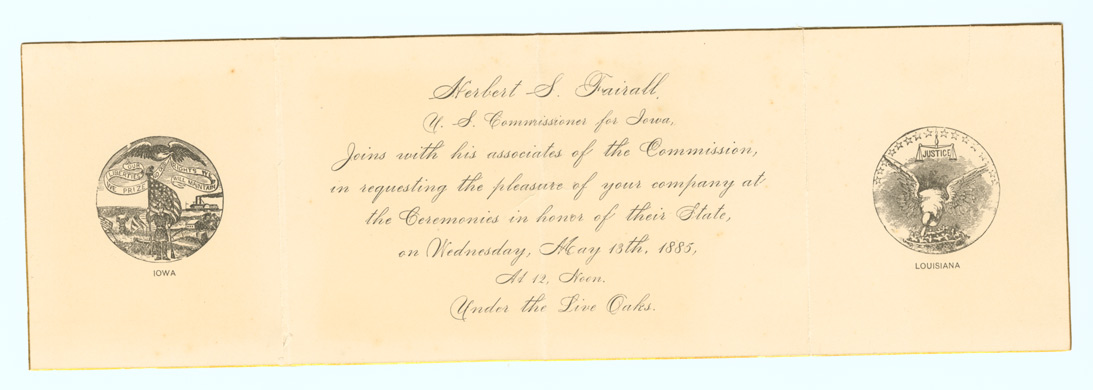 Herbert S. Fairall,
U. S. Commissioner for Iowa,
Joins with his associates of the Commission,
in requesting the pleasure of your company at
the Ceremonies in honor of their State,
on Wednesday, May 13th, 1885,
At 12, Noon.
Under the Live Oaks.
OUR LIBERTIES WE PRIZE AND OUR RIGHTS WE WILL MAINTAIN
IOWA
JUSTICE
LOUISIANA